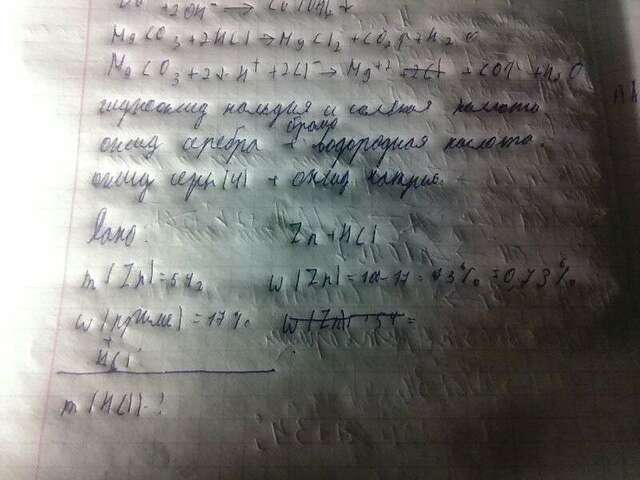 +2OH⁻ →
MgCO3+2HCl→MgCl2+CO2↑+H2O
MgCO3+2H⁺+2Cl⁻→Mg⁺²+2Cl⁻+CO2↑+H2O
гидроксид кальция и соляная кислота
оксид серебра + бромоводородная кислота.
оксид серы (4) + оксид натрия.
Дано: Zn+HCl
m(Zn)=54г w(Zn)=100-17= % =0,73%
w(прим)=17% w(Zn) 54=
+HCl
m(HCl)-?